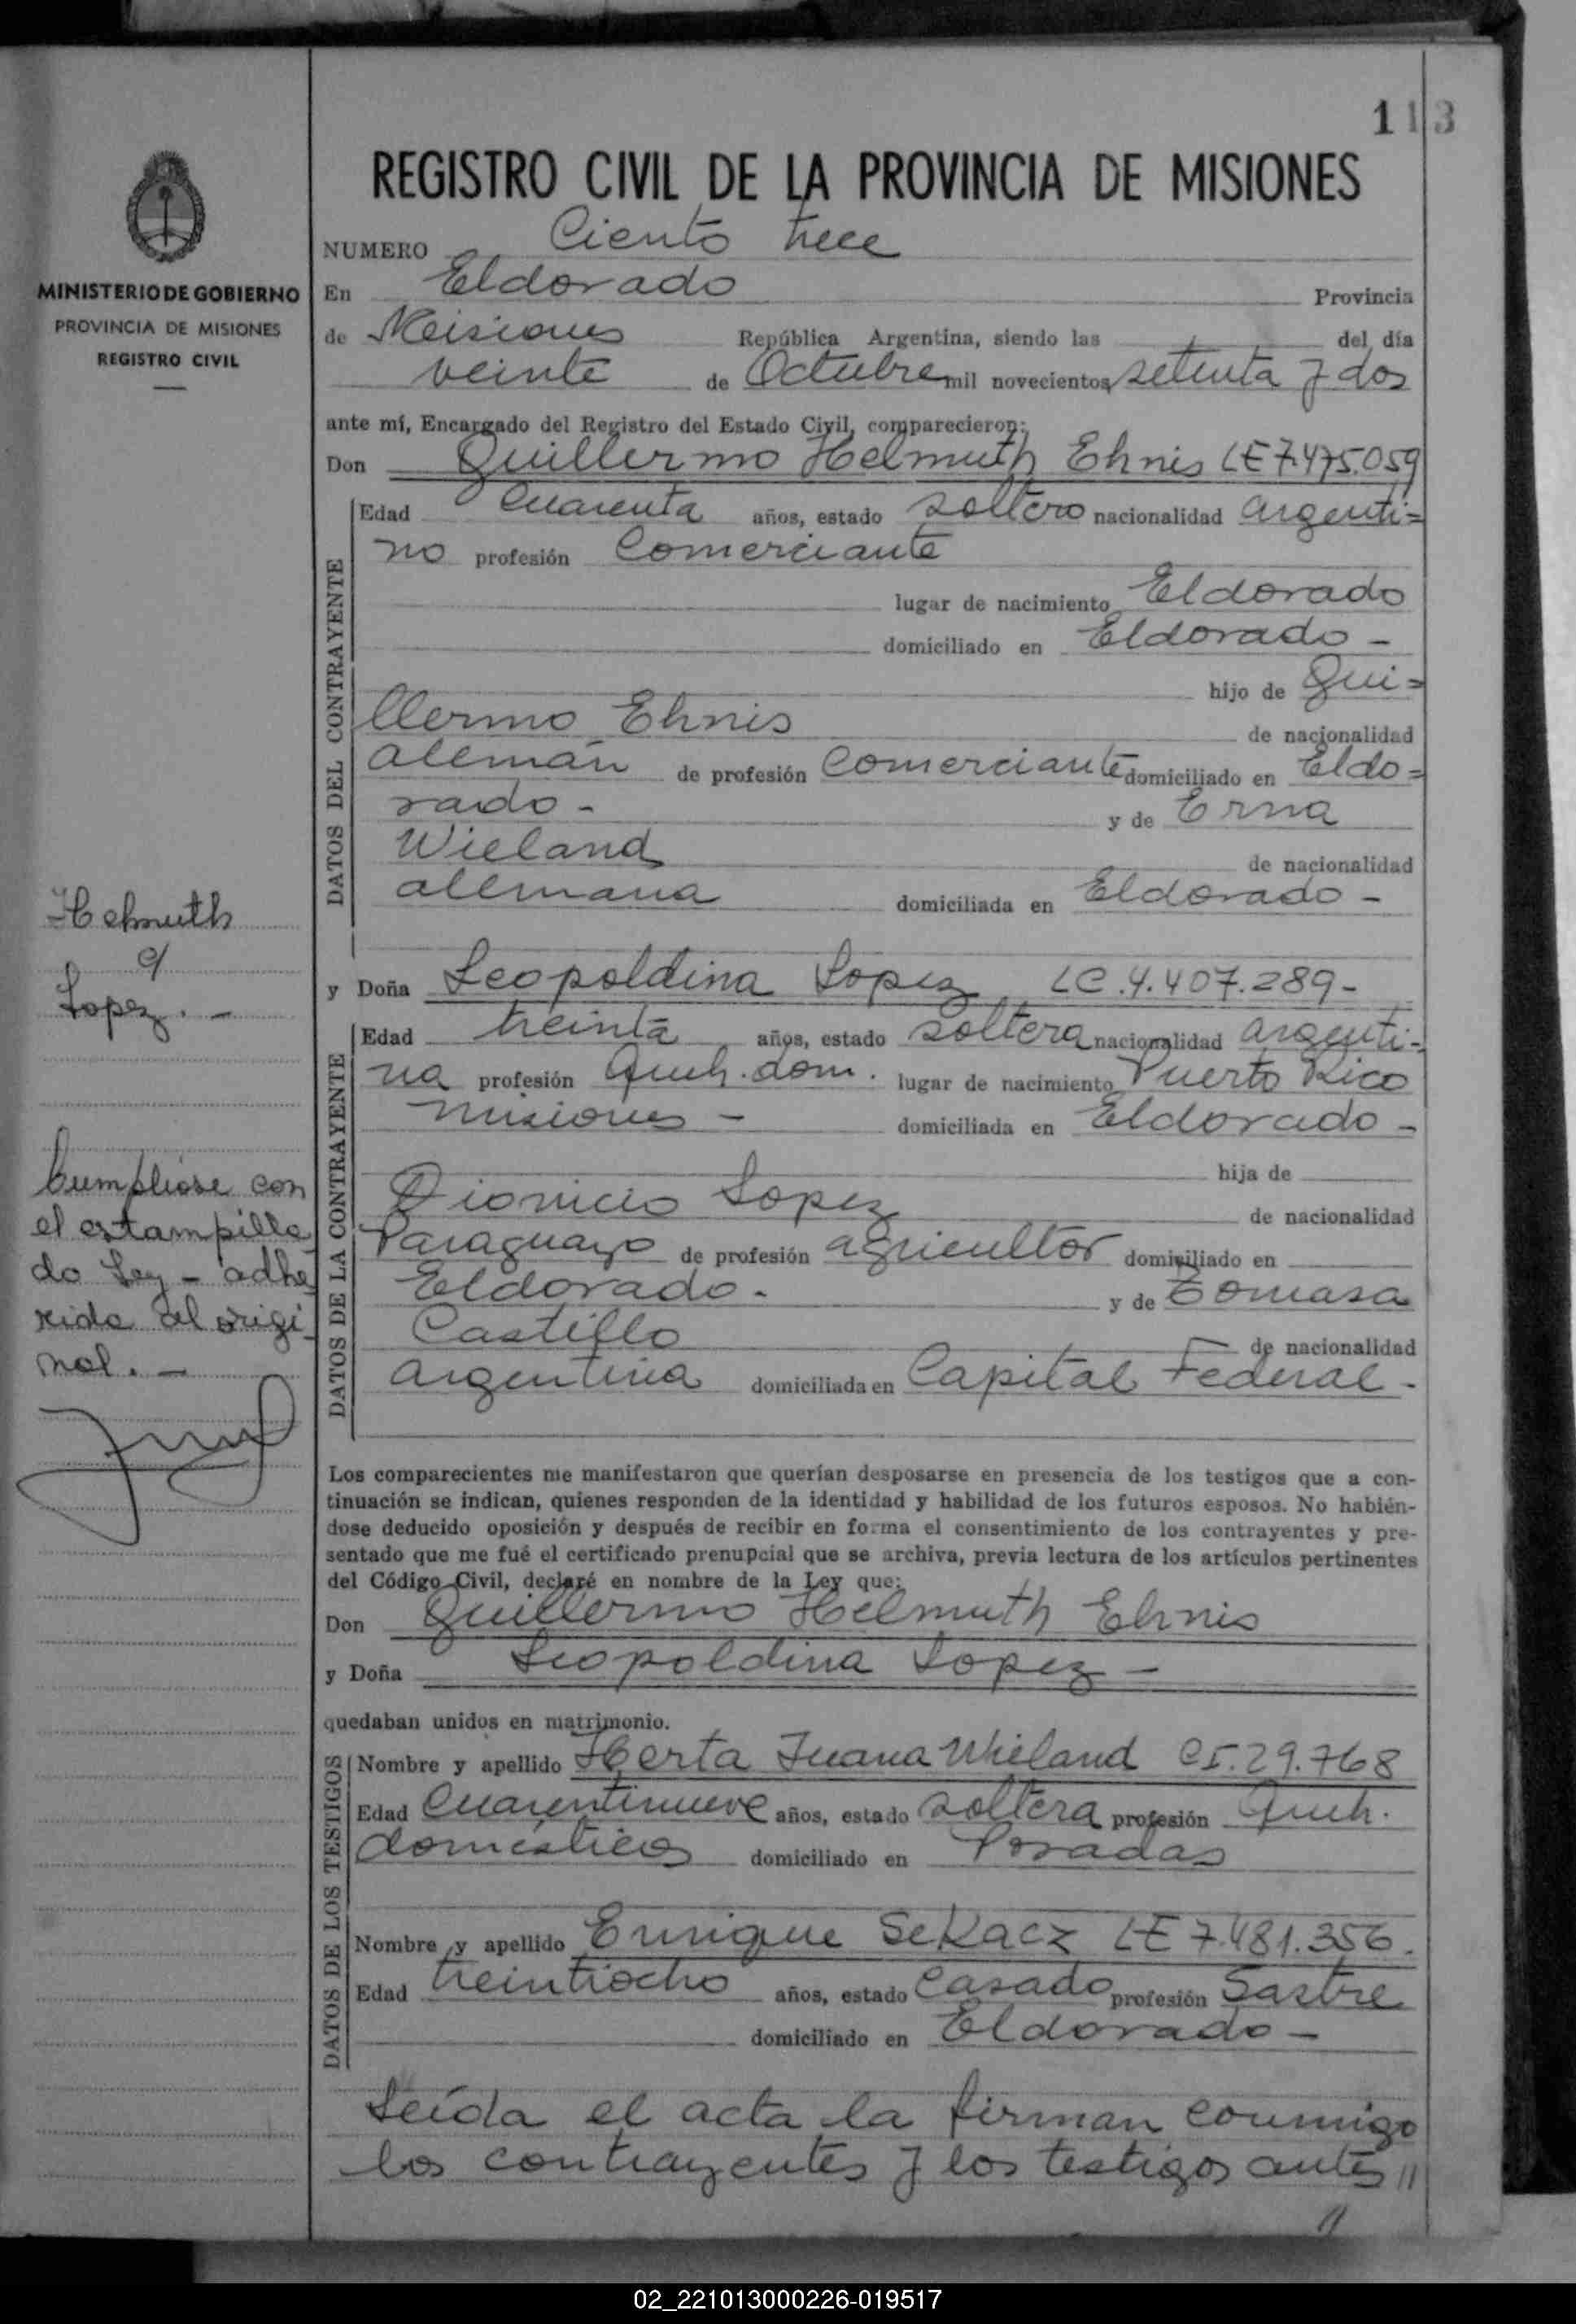 113
REGISTRO CIVIL DE LA PROVINCIA DE MISIONES
MINISTERIO DE GOBIERNO
PROVINCIA DE MISIONES
REGISTRO CIVIL
NUMERO Ciento trece
En Eldorado Provincia
de Misiones República Argentina, siendo las del día
veinte de Octubre mil novecientos setenta y dos
ante mí, Encargado del Registro del Estado Civil, comparecieron:
Don Guillermo Helmuth Ehnis LE 7.475.059
DATOS DEL CONTRAYENTE
Edad Cuarenta años, estado soltero nacionalidad argenti=
no profesión Comerciante
lugar de nacimiento Eldorado
domiciliado en Eldorado -
hijo de Gui=
llermo Ehnis de nacionalidad
alemán de profesión Comerciante domiciliado en Eldo=
rado - y de Erna
Wieland de nacionalidad
alemana domiciliada en Eldorado -
Helmuth
c/
Lopez. -
y Doña Leopoldina Lopez LC. 4.407.289-
DATOS DE LA CONTRAYENTE
Edad treinta años, estado soltera nacionalidad argenti-
na profesión Queh. dom. lugar de nacimiento Puerto Rico
misiones - domiciliada en Eldorado -
hija de
Dionicio Lopez de nacionalidad
Paraguayo de profesión agricultor domiciliado en
Eldorado. y de Tomasa
Castillo de nacionalidad
argentina domiciliada en Capital Federal -
Cumpliose con
el estampilla
do Ley - adhe
rida al origi-
nal. -
Los comparecientes me manifestaron que querían desposarse en presencia de los testigos que a con-
tinuación se indican, quienes responden de la identidad y habilidad de los futuros esposos. No habién-
dose deducido oposición y después de recibir en forma el consentimiento de los contrayentes y pre-
sentado que me fué el certificado prenupcial que se archiva, previa lectura de los artículos pertinentes
del Código Civil, declaré en nombre de la Ley que:
Don Guillermo Helmuth Ehnis
y Doña Leopoldina Lopez -
quedaban unidos en matrimonio.
DATOS DE LOS TESTIGOS
Nombre y apellido Herta Juana Wieland CI. 29.768
Edad Cuarentinueve años, estado soltera profesión Queh.
domésticos domiciliado en Posadas
Nombre y apellido Enrique Sekacz LE 7.481.356.
Edad treintiocho años, estado Casado profesión Sastre
domiciliado en Eldorado -
Leída el acta la firman conmigo
los contrayentes y los testigos antes //
//
02_221013000226-019517